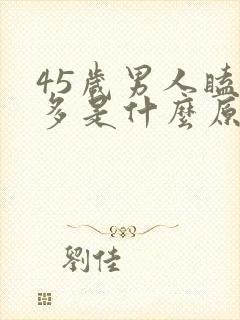 45歲男人瞌
多是什麼原
劉佳